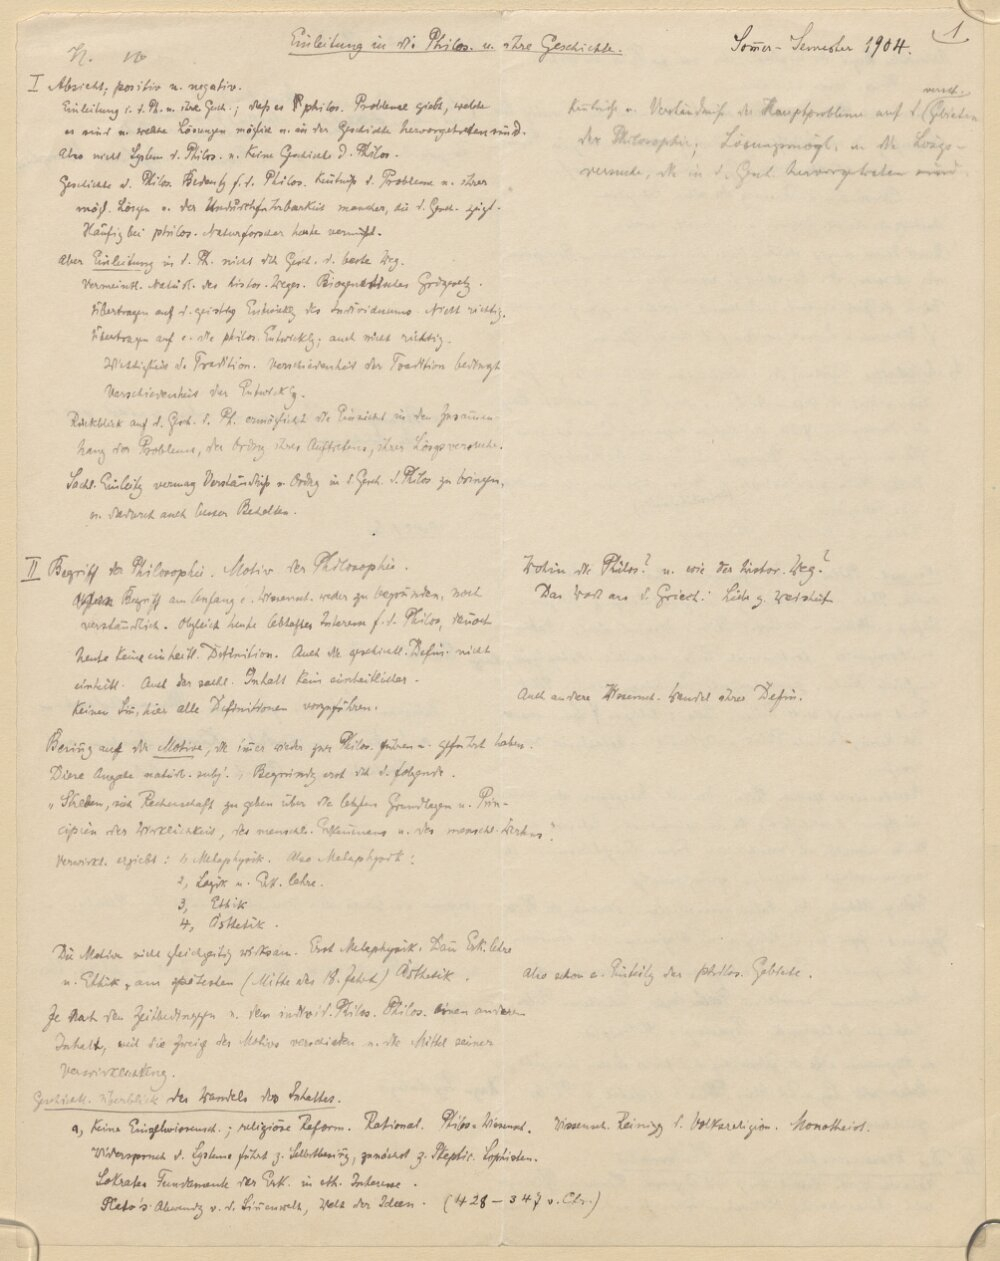 Einleitung in die Philos. u. ihre Geschichte.
Sommer-Semester 1904.
1
I Absicht, positiv u. negativ.
Einleitung i. d. Ph. u. ihre Gesch.; daß es philos. Probleme giebt, welche
es sind u. welche Lösungen möglich u. in der Geschichte hervorgetreten sind.
Also nicht System d. Philos. u. keine Geschichte d. Philos.
Geschichte d. Philos. Bedeutg f. d. Philos. Kentniß d. Probleme u. ihrer
mögl. Lösgen u. der Undurchführbarkeit mancher, die d. Gesch. zeigt.
Häufig bei philos. Naturforscher heute vermißt.
Aber Einleitung in d. Ph. nicht dch Gesch. d. beste Weg.
Vermeintl. Natürl. des histor. Weges. Biogenetisches Grdgesetz.
Übertragen auf d. geistig Entwicklg des Individuums. Nicht richtig.
Übertragen auf d. philos. Entwicklg; auch nicht richtig.
Wichtigkeit d. Tradition. Verschiedenheit der Tradition bedingt
Verschiedenheit der Entwicklg.
Rückblick auf d. Gesch. d. Ph. ermöglicht die Einsicht in den Zusammen-
hang der Probleme, der Ordng ihres Auftretens, ihrer Lösgsversuche.
Sachl. Einleitg vermag Verständniß u. Ordng in d. Gesch. d. Philos. zu bringen,
u. dadurch auch besser Behalten.
Kentniß u. Verständniß der Hauptprobleme auf d. versch. Gebieten
der Philosophie; Lösungsmögl. u. die Lösgs-
versuche, die in d. Gesch. hervorgetreten sind.
II Begriff der Philosophie. Motiv der Philosophie.
Begriff am Anfang e. Wissensch. weder zu begründen, noch
verständlich. Obgleich heute lebhaftes Interesse f. d. Philos., dennoch
heute keine einheitl. Definition. Auch die geschichtl. Defin. nicht
einheitl. Auch der sachl. Inhalt kein einheitlicher.
Keinen Sinn, hier alle Definitionen vorzuführen.
Wohin die Philos? u. wie der histor. Weg?
Das Wort aus d. Griech.: Liebe z. Weisheit
Auch andere Wissensch. Wandel ihrer Defin.
Besinng auf die Motive, die immer wieder zur Philos. führen u. geführt haben.
Diese Angabe natürl. subj., Begründg erst dch d. folgende.
„Streben, sich Rechenschaft zu geben über die letzten Grundlagen u. Prin-
cipien der Wirklichkeit, des menschl. Erkennens u. des menschl. Wirkens".
Verwirkl. ergiebt: 1, Metaphysik. Also Metaphysik:
2, Logik u. Erk. lehre.
3, Ethik
4, Ästhetik.
Die Motive nicht gleichzeitig wirksam. Erst Metaphysik. Dann Erk. lehre
u. Ethik, am spätesten (Mitte des 18. Jahrh) Ästhetik.
Also schon e. Einteilg der philos. Gebiete.
Je nach den Zeitbedinggen u. dem individ. Philos. Philos. einen anderen
Inhalt, weil die Zweige des Motivs verschieden u. die Mittel seiner
Verwirklichung.
Geschichtl. Überblick des Wandels des Inhaltes.
a, Keine Einzelwissensch.; religiöse Reform. Rational. Philos = Wissensch. Wissensch. Reinigg d. Volksreligion. Monotheist.
Widerspruch d. Systeme führt z. Selbstbesing, zunächst z. Skeptic. Sophisten.
Sokrates Fundamente der Erk. in eth. Interesse.
Plato's Abwendg v. d. Sinnenwelt, Welt der Ideen. (428–347 v. Chr.)